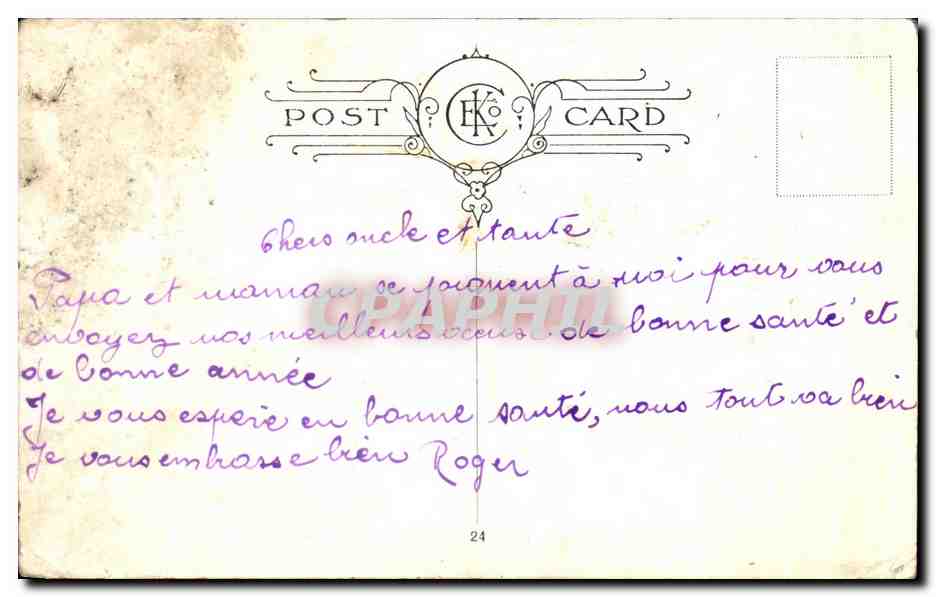 POST CARD
EK Co
Chers oncle et tante
Papa et maman se joignent à moi pour vous
envoyez nos meilleurs voeux de bonne santé et
de bonne année
Je vous espère en bonne santé, nous tout va bien
Je vous embrasse bien Roger
CPAPHIL
24